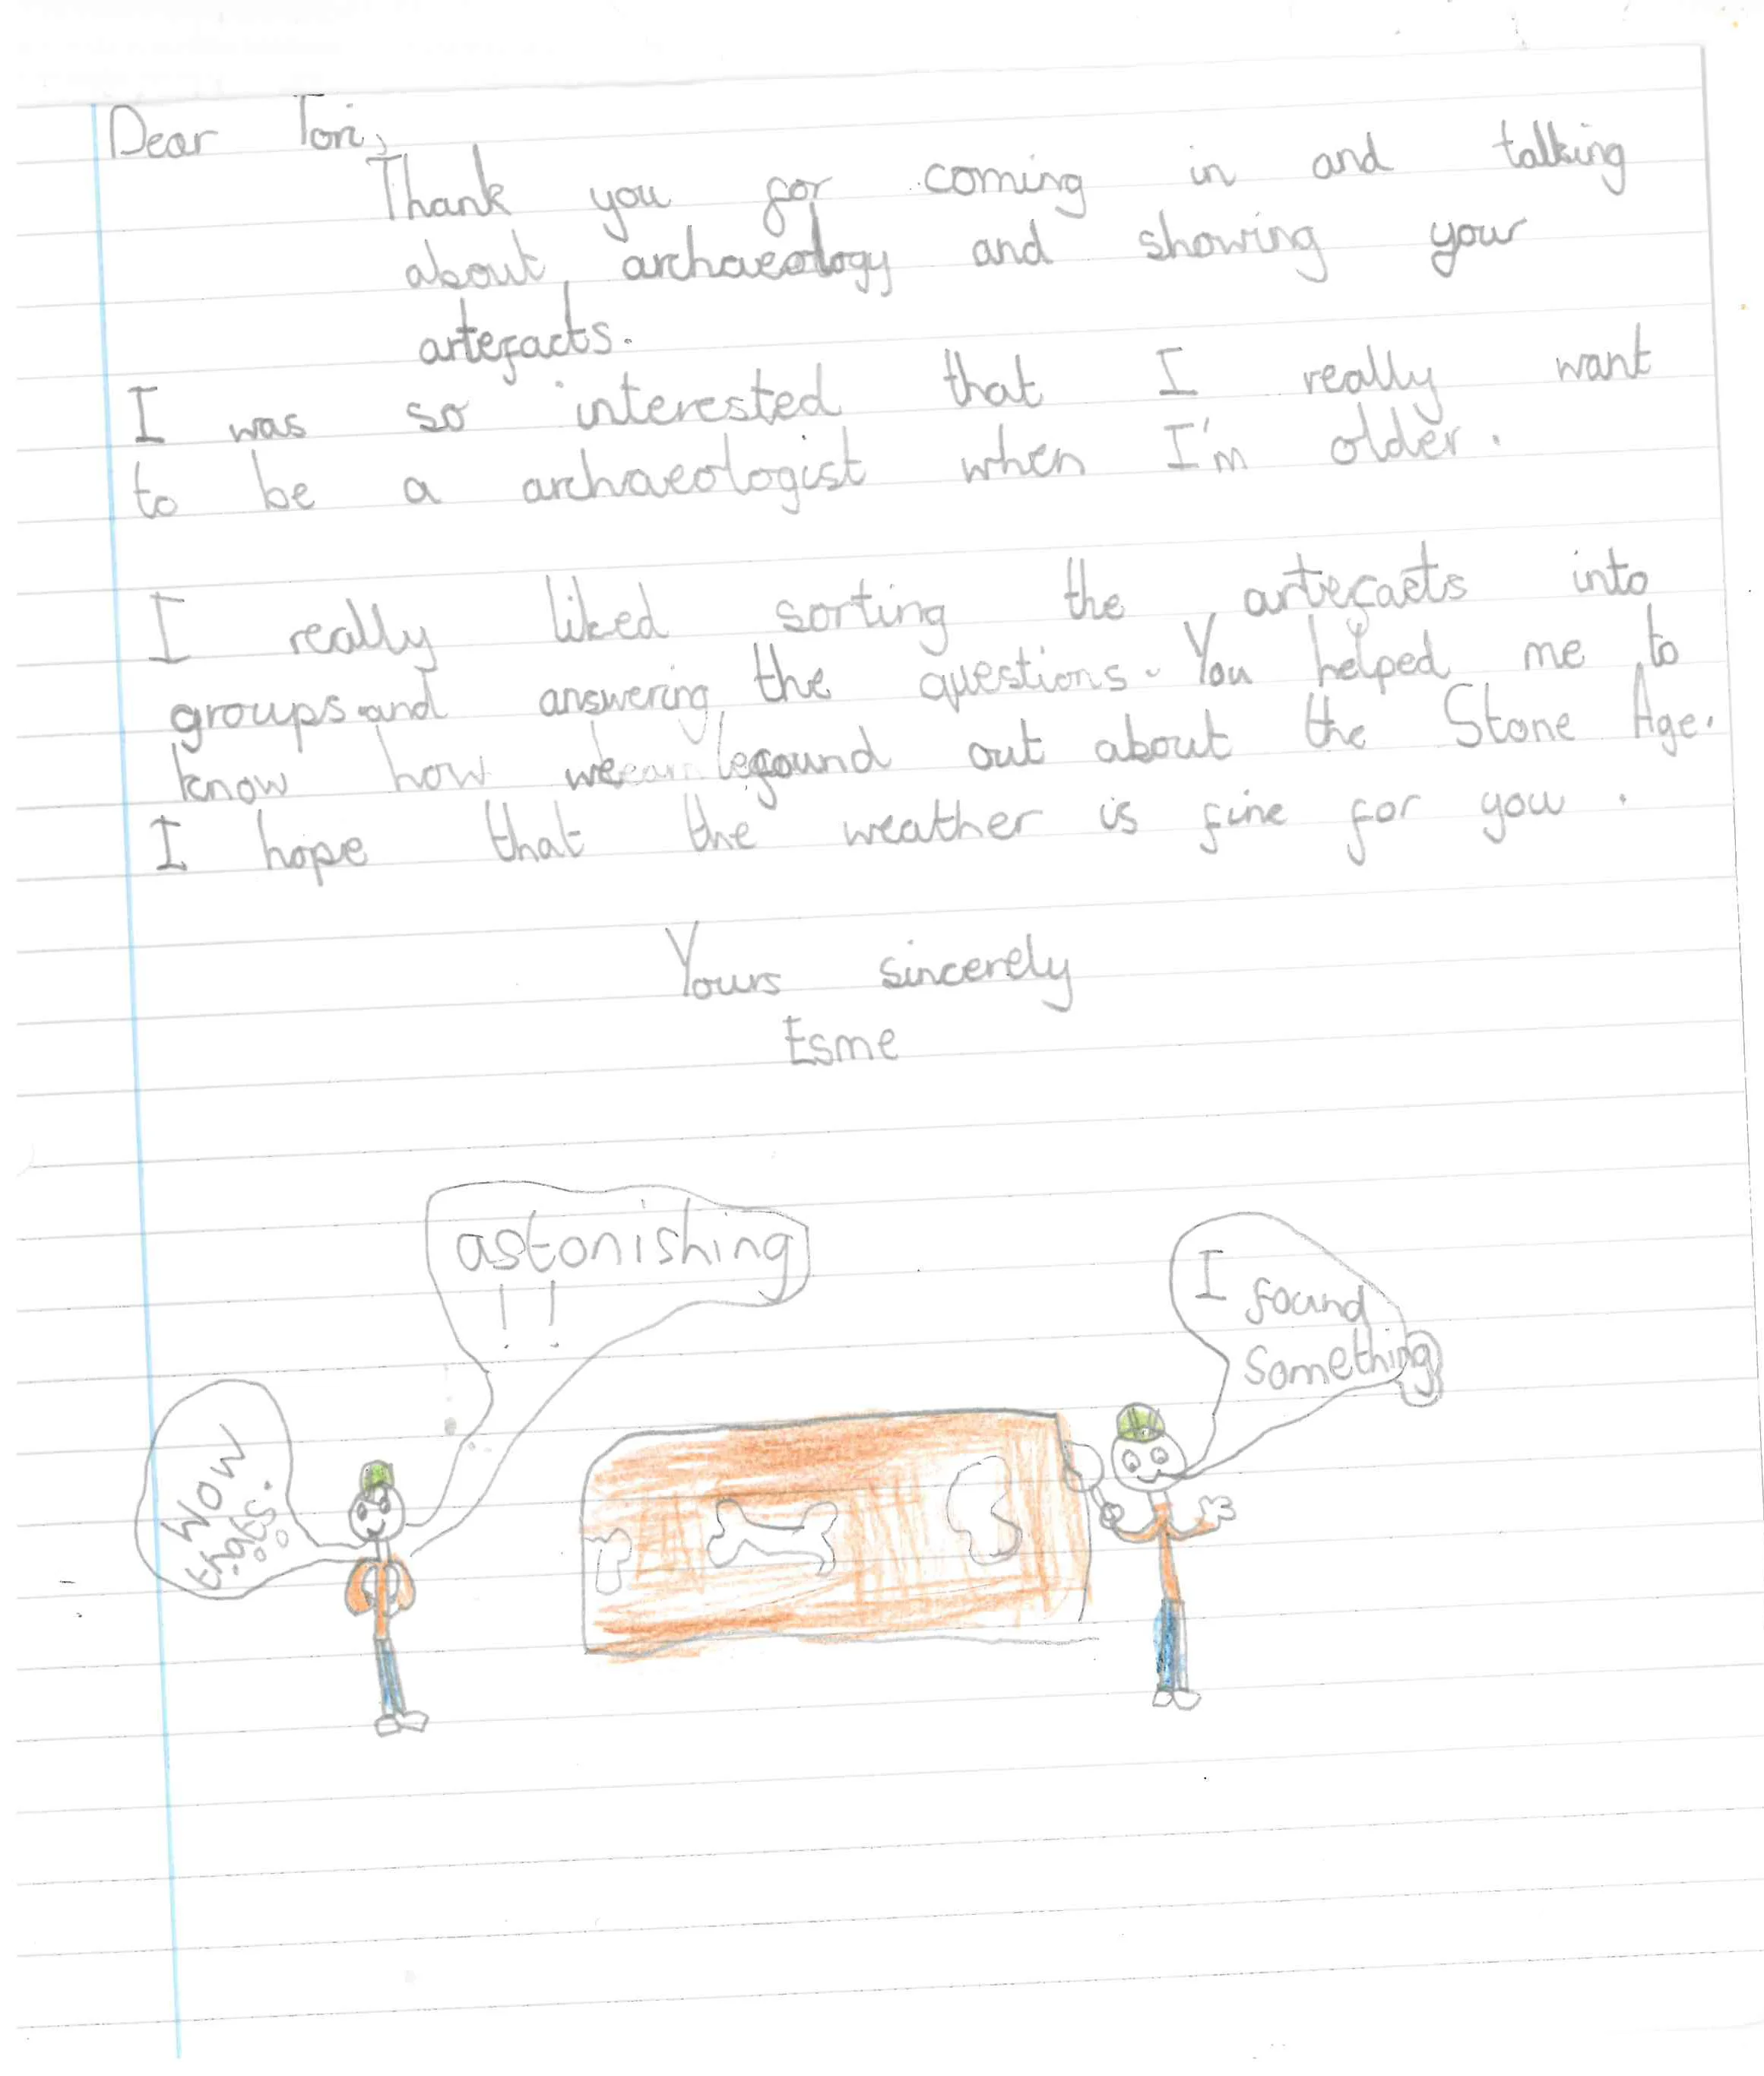 Dear Tori,
Thank you for coming in and talking
about archaeology and showing your
artefacts.
I was so interested that I really want
to be a archaeologist when I'm older.
I really liked sorting the artefacts into
groups and answering the questions. You helped me to
know how we found out about the Stone Age.
I hope that the weather is fine for you.
Yours sincerely
Esme
astonishing
!!
I found
Something
Wow